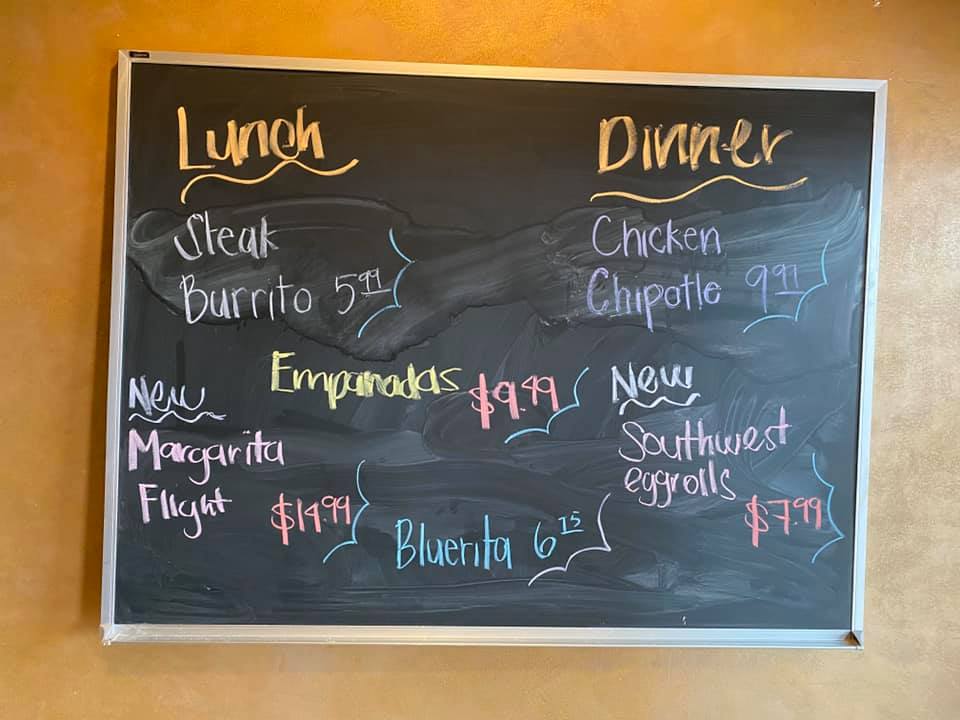 Lunch
Steak
Burrito 5 99
Dinner
Chicken
Chipotle 9 99
Empanadas $9.49
New
Margarita
Flight $14.99
New
Southwest
eggrolls
$7.99
Bluerita 6 15